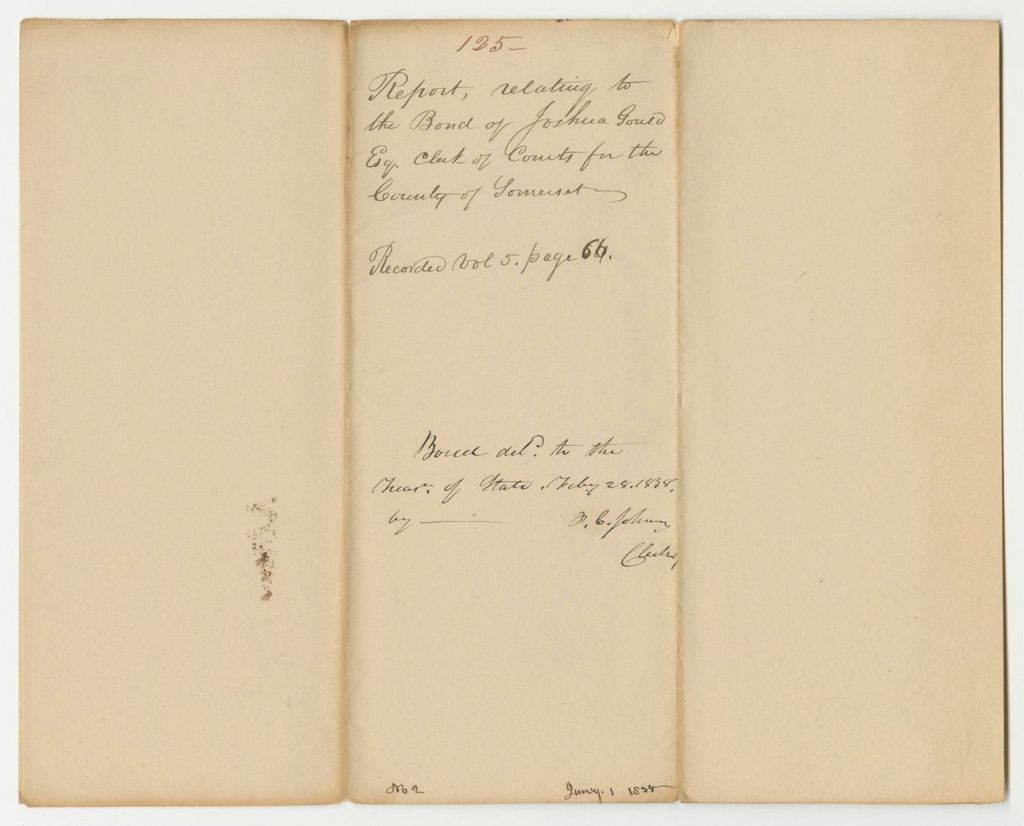 125-
Report, relating to
the Bond of Joshua Gould
Esq. Clerk of Courts for the
County of Somerset
Recorded Vol 5. page 64.
Bond deld. to the
Treasr. of State, Feby 28. 1838,
by — P. C. Johnson
Clerk,
No 2
Jany. 1 1835